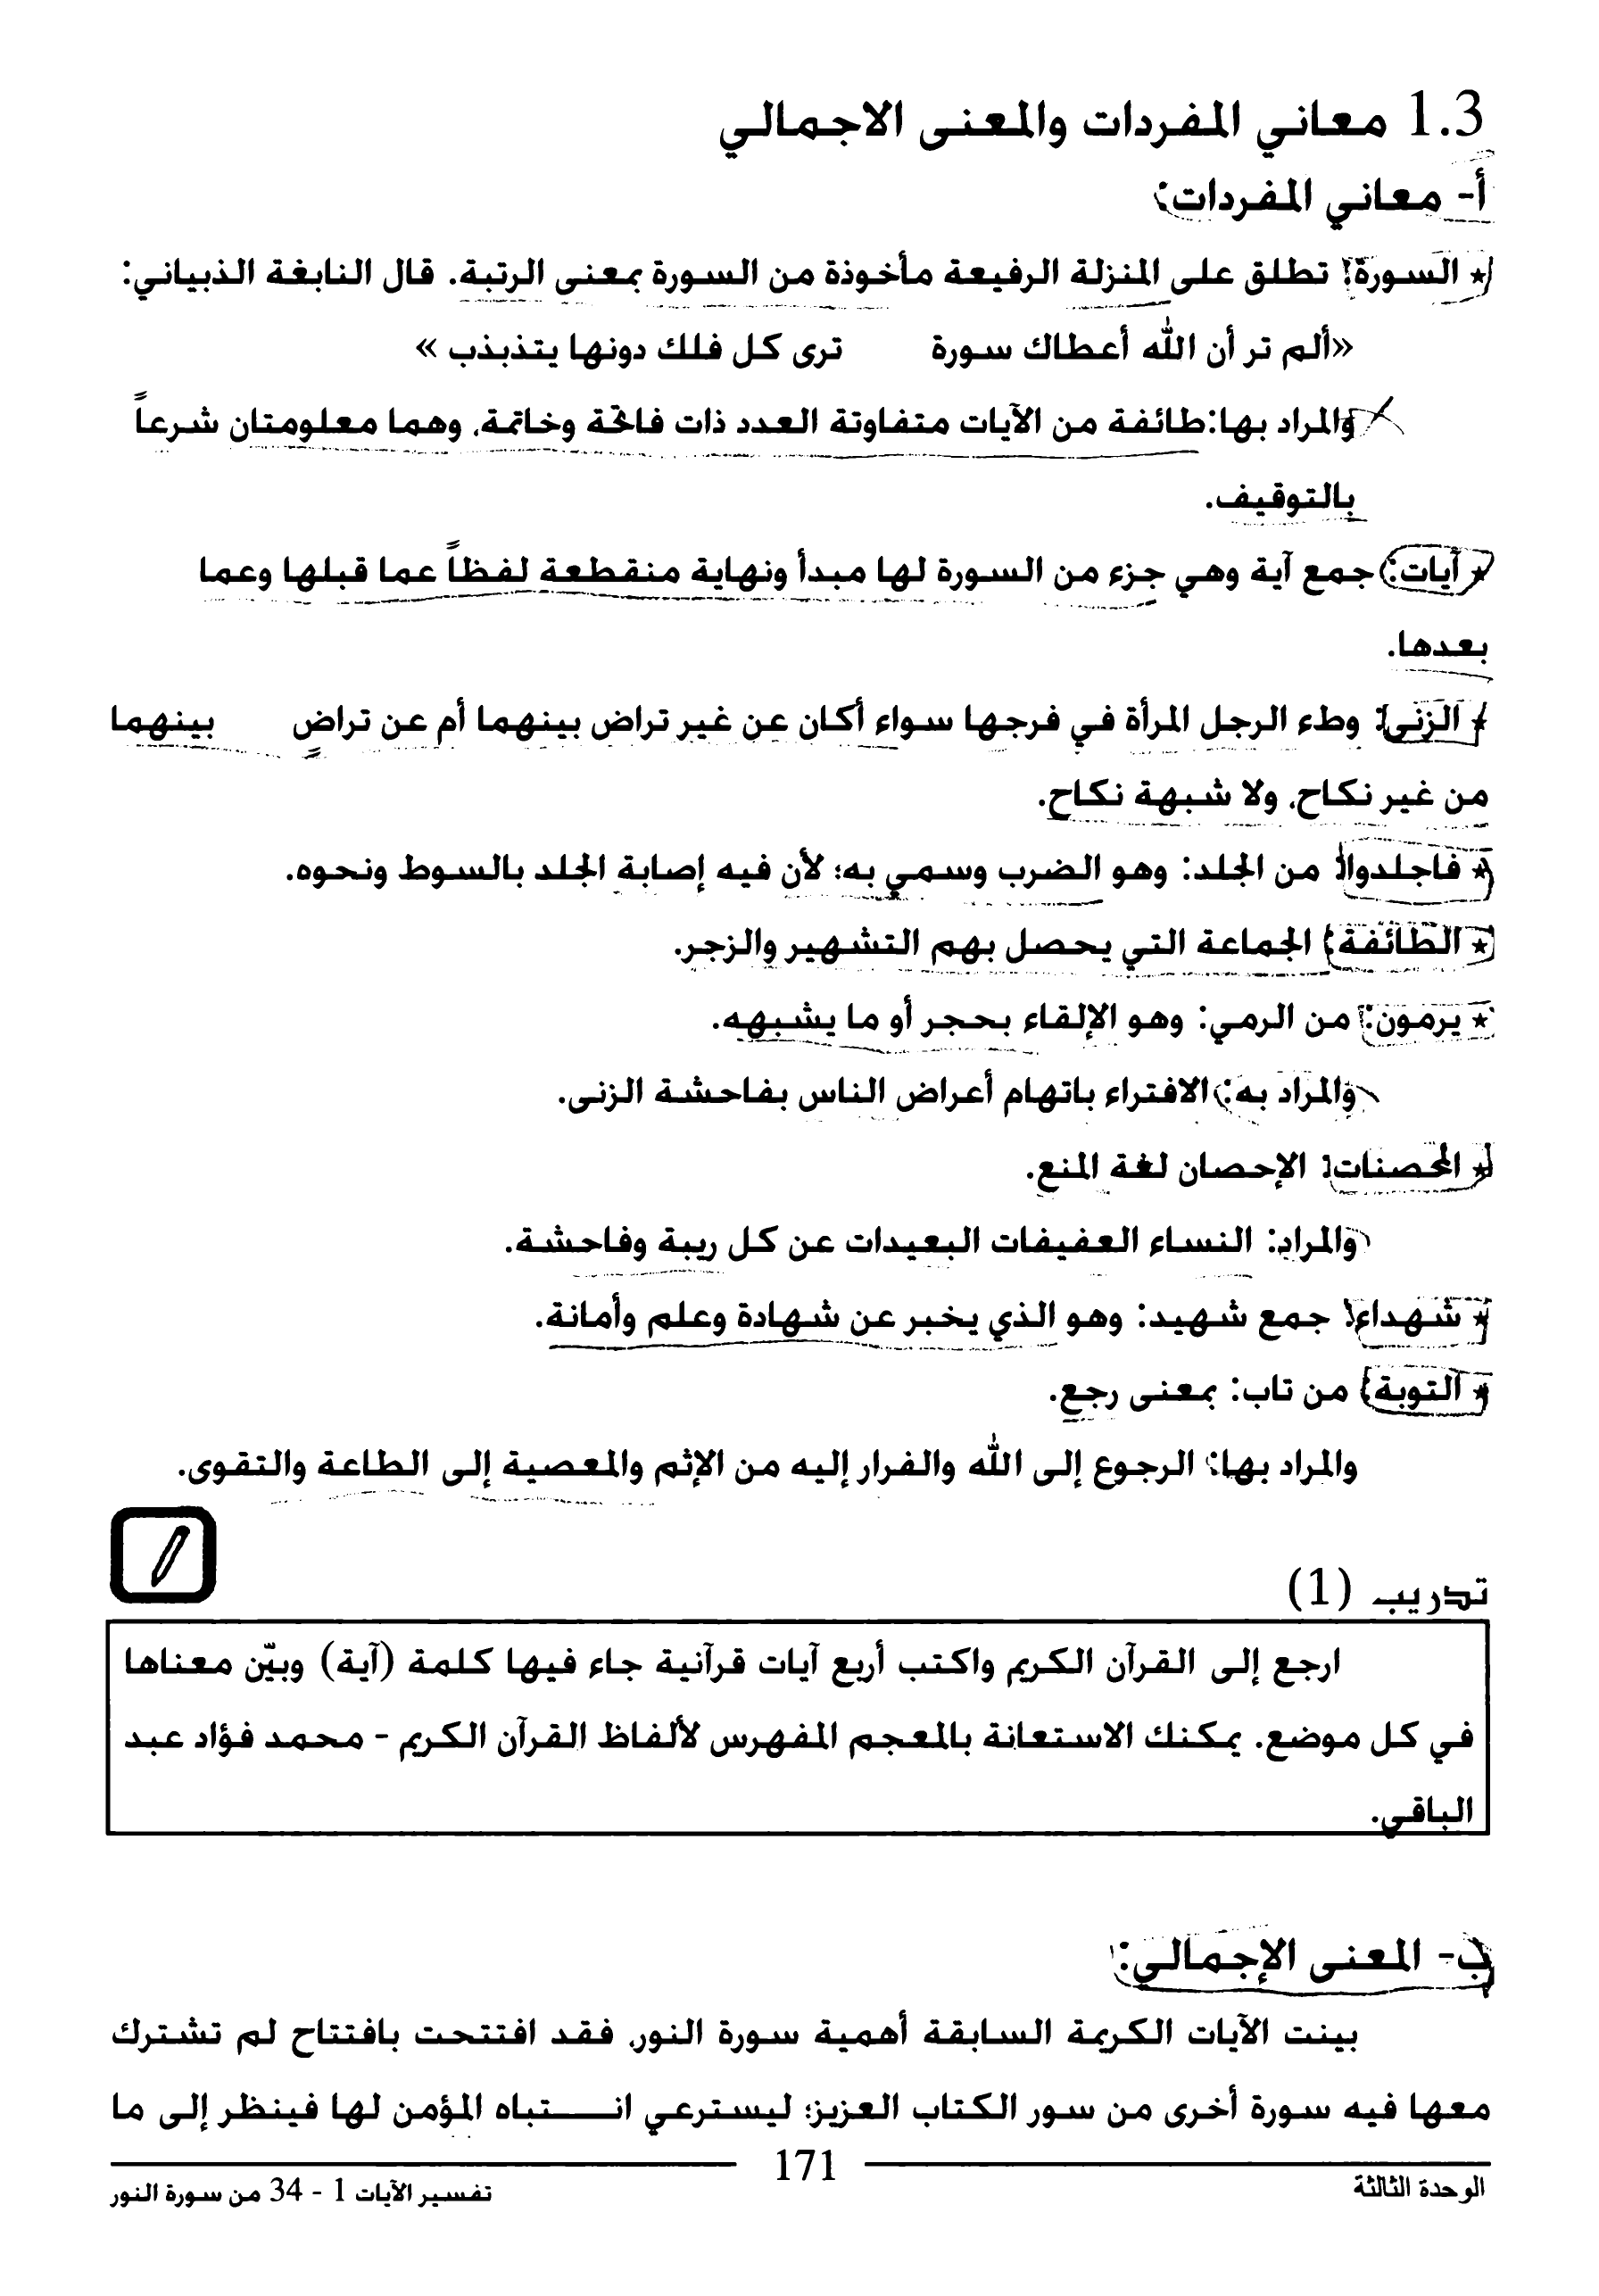 1.3 معاني المفردات والمعنى الاجمالي
أ- معاني المفردات:
* السورة: تطلق على المنزلة الرفيعة مأخوذة من السورة بمعنى الرتبة. قال النابغة الذبياني:
«ألم تر أن الله أعطاك سورة ترى كل فلك دونها يتذبذب »
والمراد بها:طائفة من الآيات متفاوتة العدد ذات فاتحة وخاتمة، وهما معلومتان شرعاً
بالتوقيف.
* آيات: جمع آية وهي جزء من السورة لها مبدأ ونهاية منقطعة لفظاً عما قبلها وعما
بعدها.
* الزنى: وطء الرجل المرأة في فرجها سواء أكان عن غير تراض بينهما أم عن تراضٍ بينهما
من غير نكاح، ولا شبهة نكاح.
* فاجلدوا: من الجلد: وهو الضرب وسمي به؛ لأن فيه إصابة الجلد بالسوط ونحوه.
* الطائفة: الجماعة التي يحصل بهم التشهير والزجر.
* يرمون: من الرمي: وهو الإلقاء بحجر أو ما يشبهه.
والمراد به: الافتراء باتهام أعراض الناس بفاحشة الزنى.
* المحصنات: الإحصان لغة المنع.
والمراد: النساء العفيفات البعيدات عن كل ريبة وفاحشة.
* شهداء: جمع شهيد: وهو الذي يخبر عن شهادة وعلم وأمانة.
* التوبة: من تاب: بمعنى رجع.
والمراد بها: الرجوع إلى الله والفرار إليه من الإثم والمعصية إلى الطاعة والتقوى.
تدريب (1)
ارجع إلى القرآن الكريم واكتب أربع آيات قرآنية جاء فيها كلمة (آية) وبيّن معناها
في كل موضع. يمكنك الاستعانة بالمعجم المفهرس لألفاظ القرآن الكريم - محمد فؤاد عبد
الباقي.
ب- المعنى الإجمالي:
بينت الآيات الكريمة السابقة أهمية سورة النور، فقد افتتحت بافتتاح لم تشترك
معها فيه سورة أخرى من سور الكتاب العزيز؛ ليسترعي انـــتباه المؤمن لها فينظر إلى ما
171
الوحدة الثالثة
تفسير الآيات 1 - 34 من سورة النور